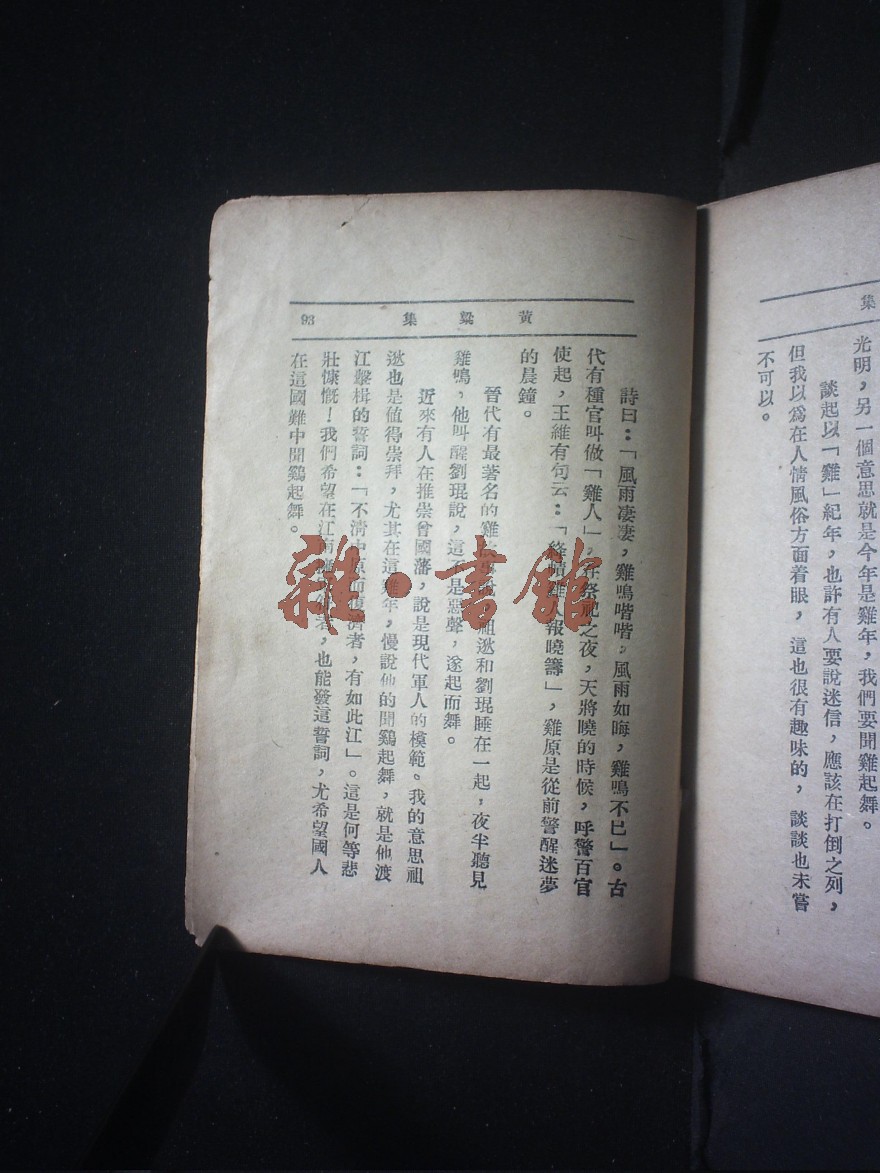 集
光明，另一個意思就是今年是雞年，我們要聞雞起舞。
談起以「雞」紀年，也許有人要說迷信，應該在打倒之列，
但我以爲在人情風俗方面着眼，這也很有趣味的，談談也未嘗
不可以。
黃粱集 93
詩曰：「風雨凄凄，雞鳴喈喈，風雨如晦，雞鳴不已」。古
代有種官叫做「雞人」，在祭祀之夜，天將曉的時候，呼警百官
使起，王維有句云：「絳幘雞人報曉籌」，雞原是從前警醒迷夢
的晨鐘。
晉代有最著名的雞 祖逖和劉琨睡在一起，夜半聽見
雞鳴，他叫醒劉琨說，這不是惡聲，遂起而舞。
近來有人在推崇曾國藩，說是現代軍人的模範。我的意思祖
逖也是值得崇拜，尤其在這雞年，慢說他的聞鷄起舞，就是他渡
江擊楫的誓詞：「不淸中原而復濟者，有如此江」。這是何等悲
壯慷慨！我們希望在江南 者，也能發這誓詞，尤希望國人
在這國難中聞鷄起舞。
雜·書館